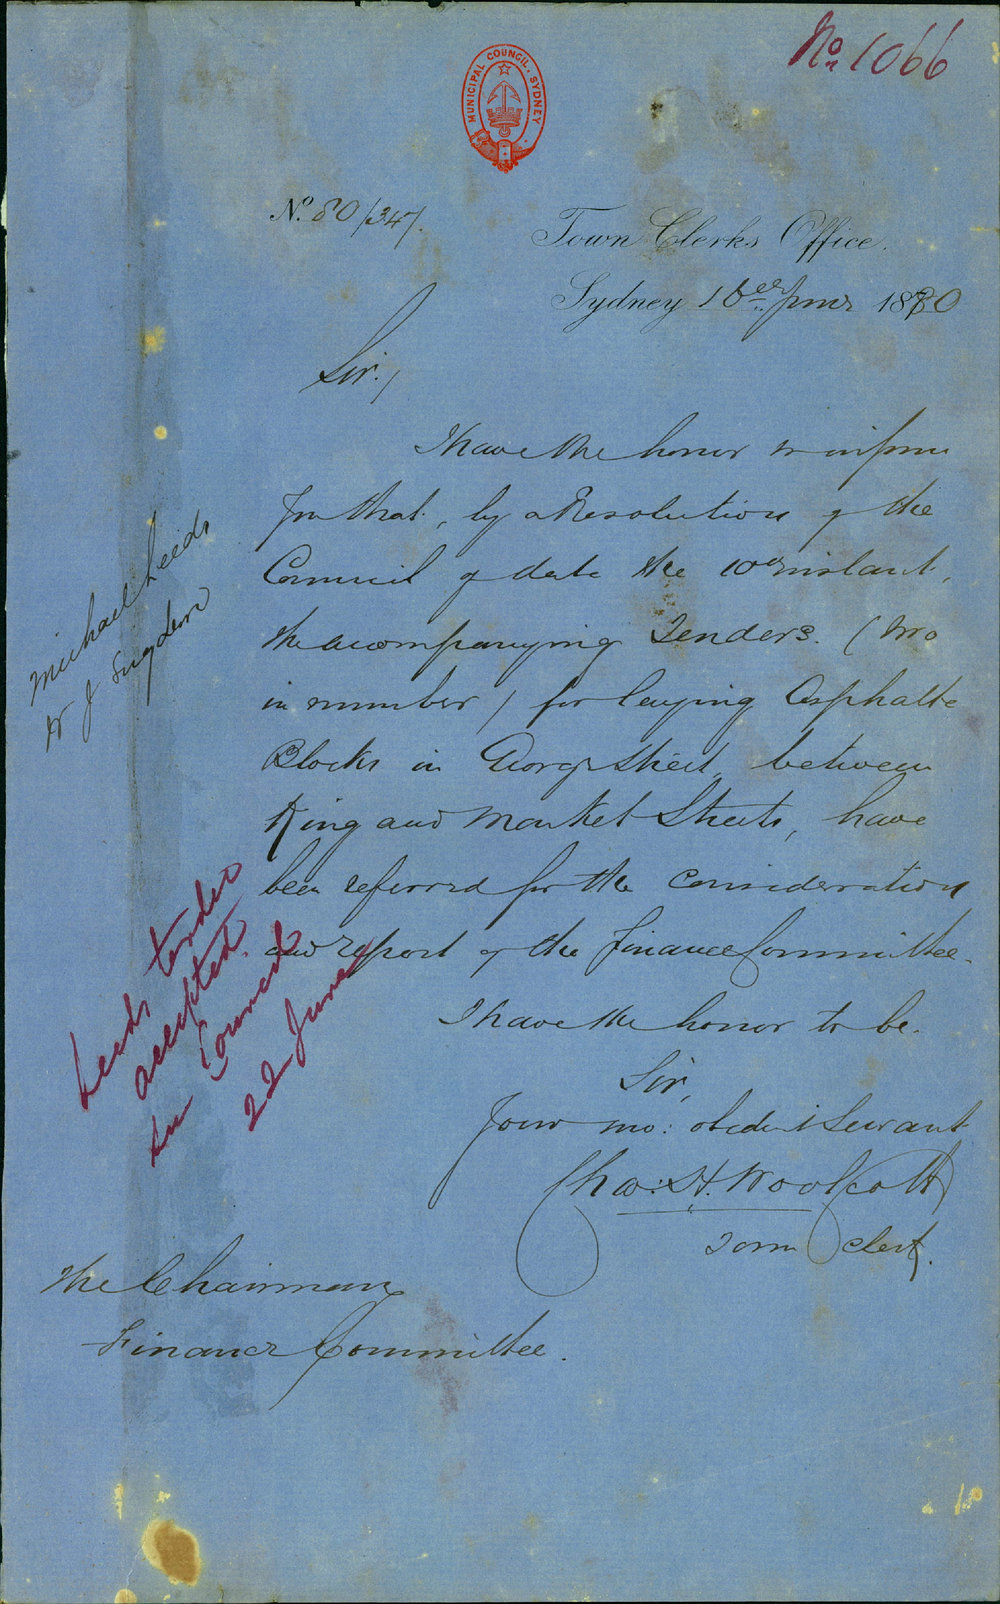 No. 1066
MUNICIPAL COUNCIL. SYDNEY.
No. 80/347.
Town Clerks Office.
Sydney 16th June 1880
Sir,
I have the honor to inform
you that, by a Resolution of the
Council of date the 10th instant,
the accompanying Tenders. (two
in number) for laying Asphalte
Blocks in George Street, between
King and Market Streets, have
been referred for the Consideration
and report of the Finance Committee.
I have the honor to be.
Sir,
Your mo: obedient Servant
Chas: H. Woolcott
Town Clerk.
The Chairman
Finance Committee.
Michael Leeds
W J Sugden
Leeds tender
accepted.
in Council
22 June